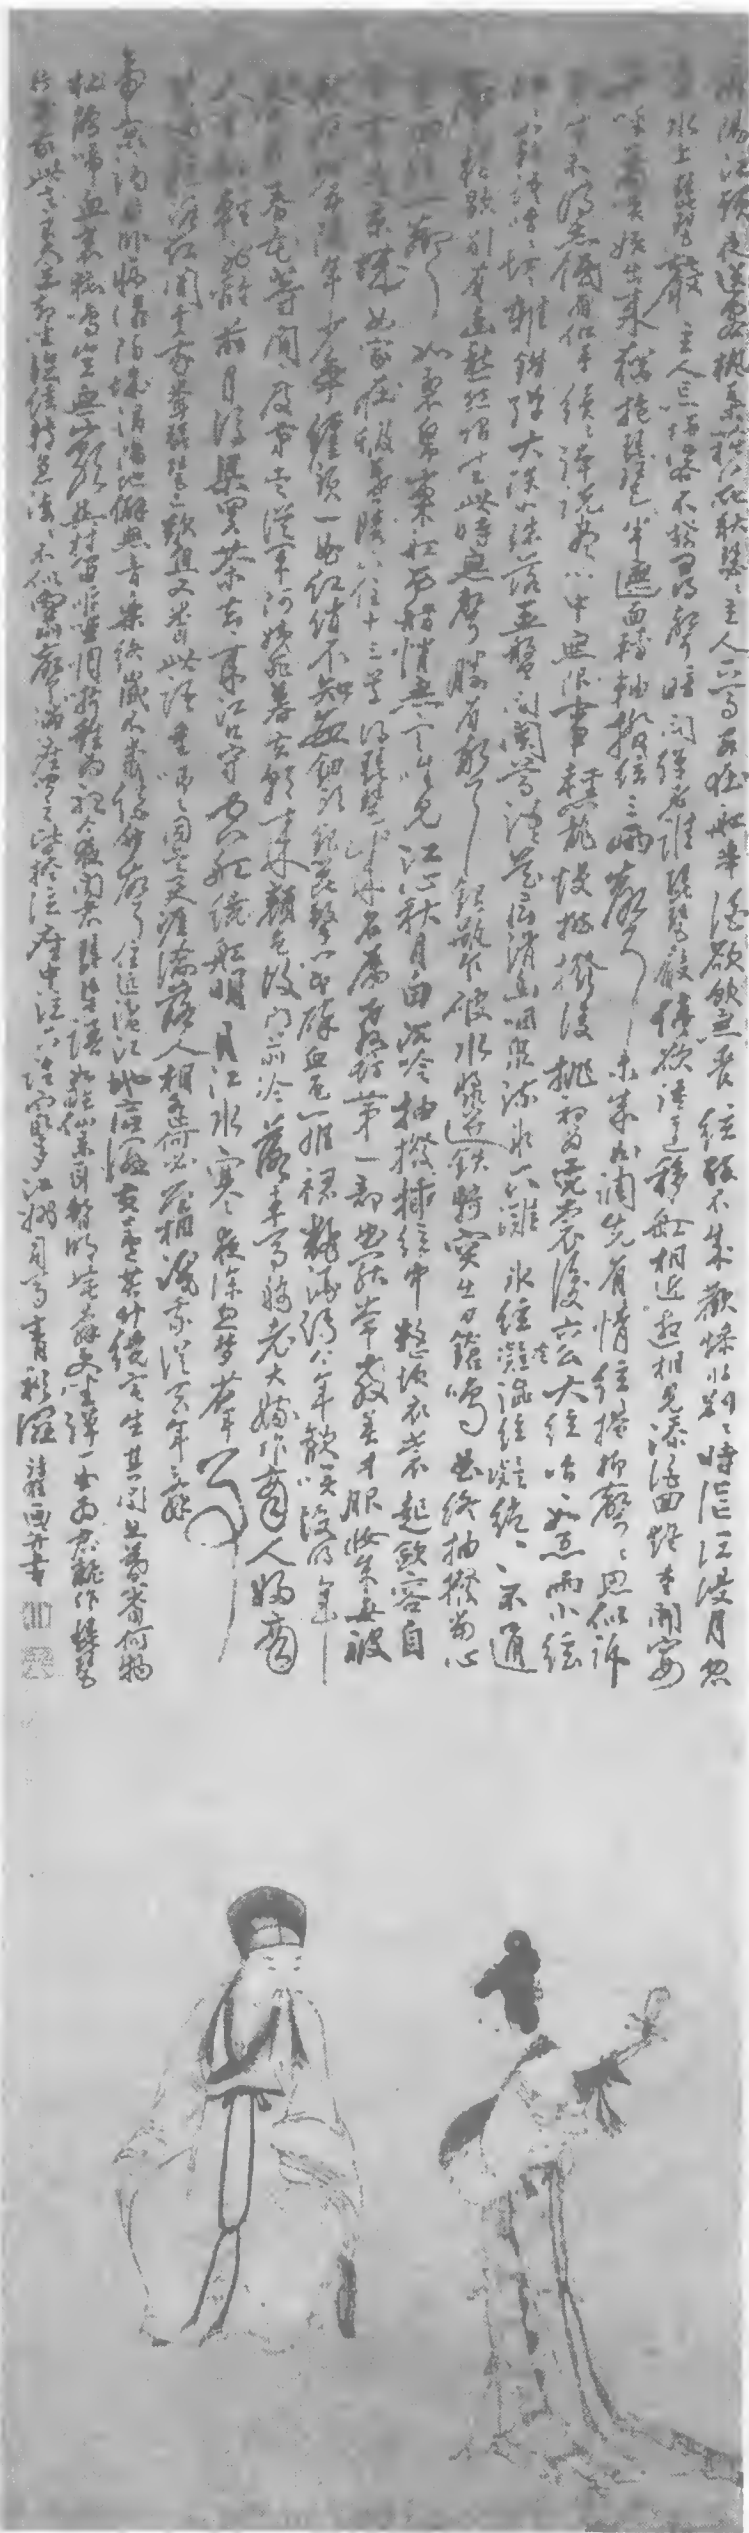 潯陽江頭夜送客楓葉荻花秋瑟ゝ主人下馬客在船舉酒欲飲無管絃醉不成歡慘將別ゝ時茫ゝ江浸月忽
水上琵琶聲主人忘歸客不發尋聲暗問彈者誰琵琶聲停欲語遲移船相近邀相見添酒回燈重開宴
呼萬喚始出來猶抱琵琶半遮面轉軸撥絃三兩聲未成曲調先有情絃ゝ掩抑聲ゝ思似訴
不得志低眉信手續ゝ彈說盡心中無限事輕攏慢撚撥復挑初為霓裳後六幺大絃嘈ゝ如急雨小絃
私語嘈ゝ切ゝ雜錯彈大珠小珠落玉盤間關鶯語花底滑幽咽泉流水下灘水絃冷澁絃凝絕ゝ不通
歇別有幽愁暗恨生此時無聲勝有聲銀瓶乍破水漿迸鐵騎突出刀鎗鳴曲終抽撥當心
四絃一聲如裂帛東船西舫悄無言唯見江心秋月白沉吟抽撥插絃中整頓衣裳起斂容自
京城女家在蝦蟆陵下住十三學得琵琶成名屬教坊第一部曲罷常教善才服妝成每被
年少爭纏頭一曲紅綃不知數鈿頭銀篦擊節碎血色羅裙翻酒污今年歡笑復明年
春花等閒度弟走從軍阿姨死暮去朝來顏色故門前冷落車馬稀老大嫁作商人婦商
人輕別離前月浮梁買茶去ゝ來江口守空船繞船明月江水寒夜深忽夢少年事
淚紅闌干我聞琵琶已歎息又聞此語重唧ゝ同是天涯淪落人相逢何必曾相識我從去年辭
帝京謫居臥病潯陽城潯陽地僻無音樂終歲不聞絲竹聲住近湓江地低濕黃蘆苦竹繞宅生其間旦暮聞何物
杜鵑啼血哀猿鳴豈無山歌與村笛嘔啞嘲哳難為聽今夜聞君琵琶語如聽仙樂耳暫明莫辭更坐彈一曲為君翻作琵琶
行感我此言良久立却坐促絃轉急淒ゝ不似向前聲滿座聞之皆掩泣座中泣下誰最多江州司馬青衫濕 清狂畫并書